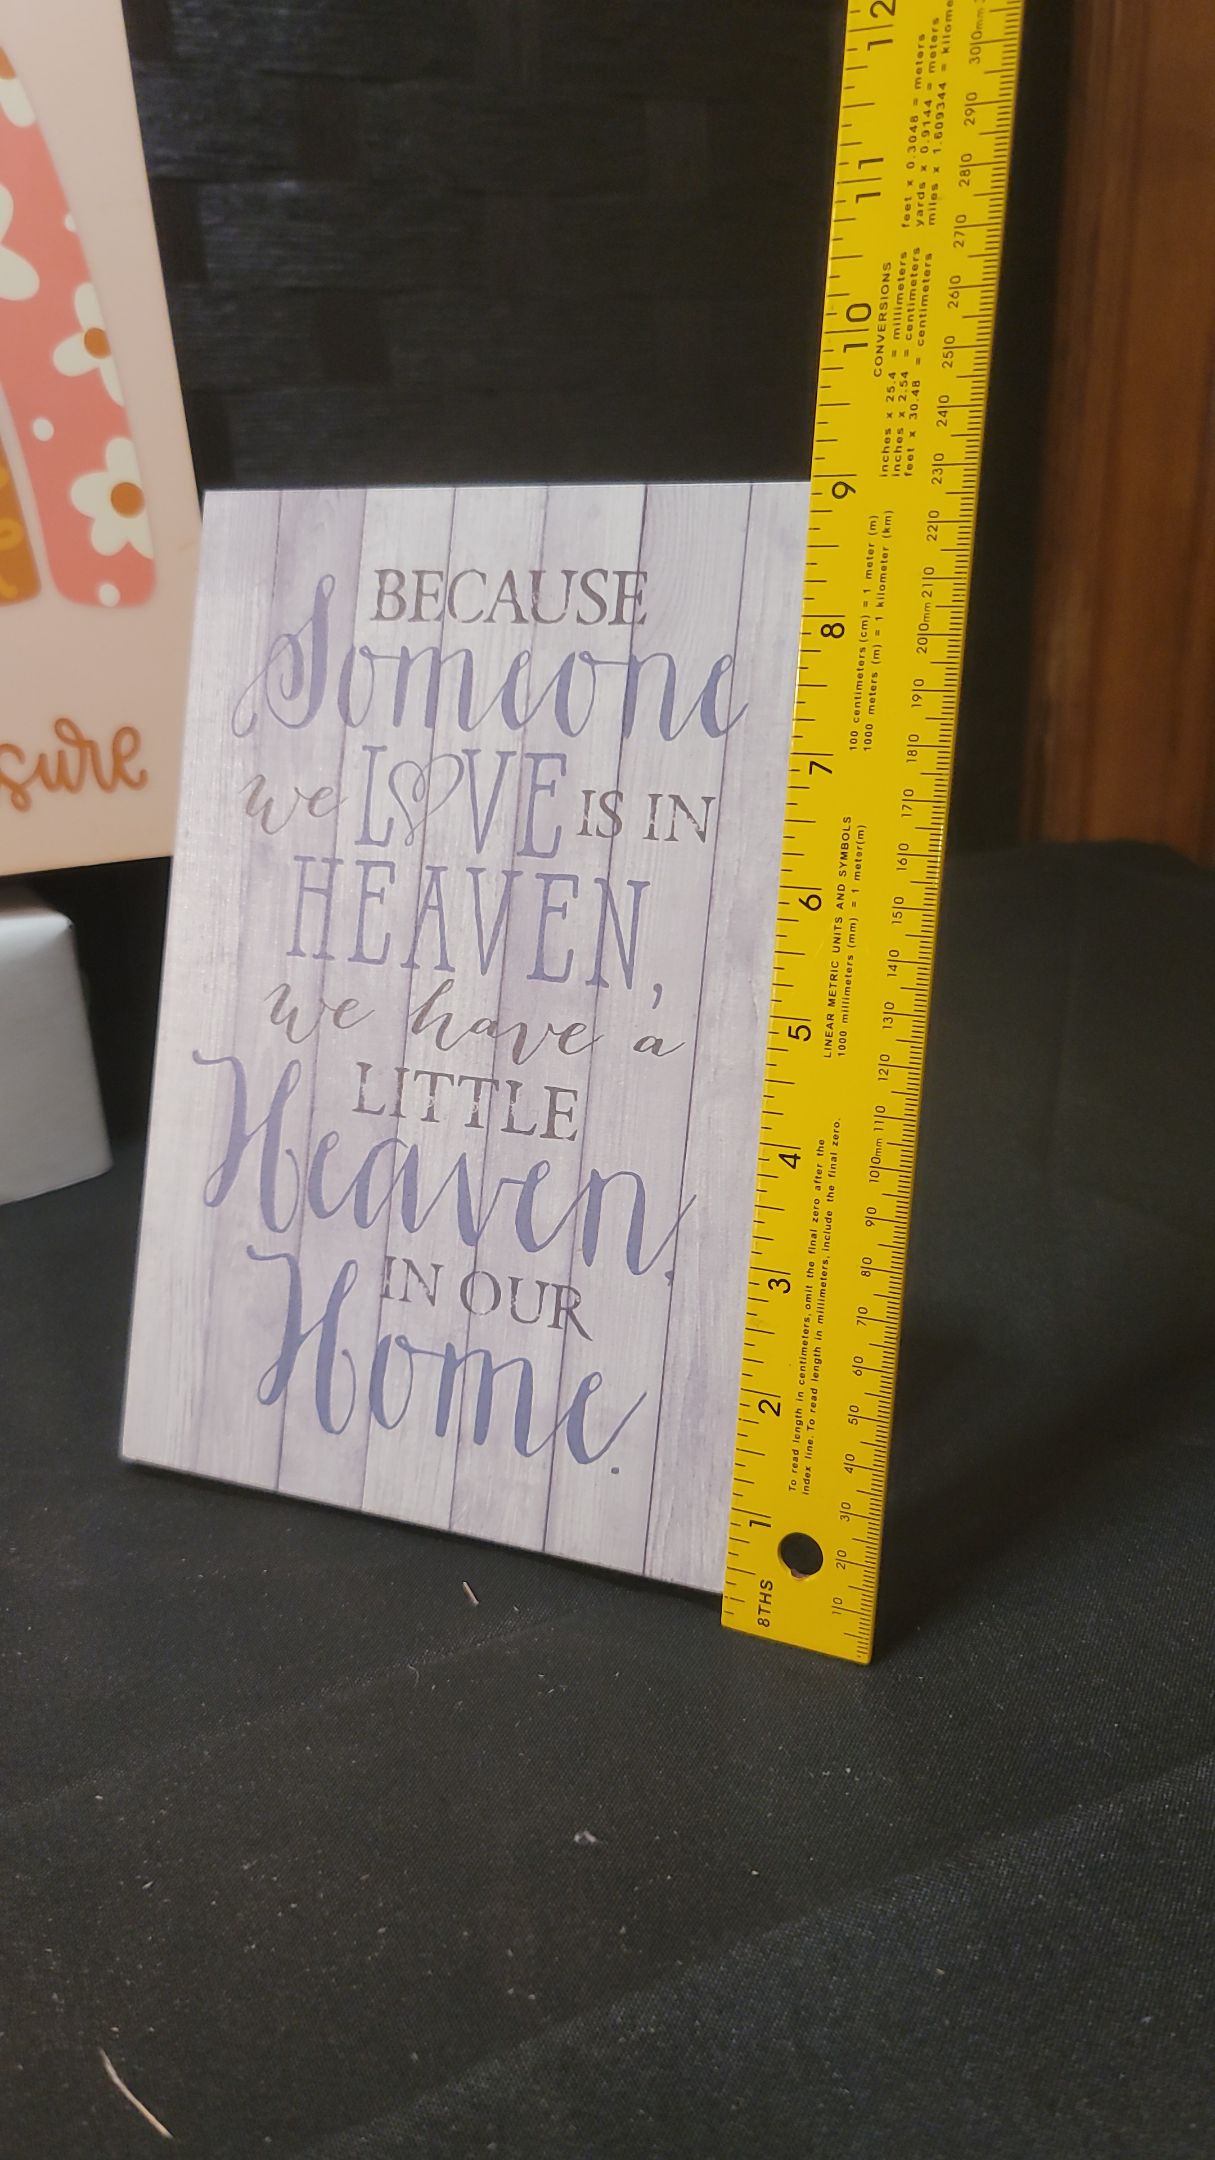 BECAUSE
Someone
we LOVE IS IN
HEAVEN,
we have a
LITTLE
Heaven
IN OUR
Home.
sure
8THS
1
2
3
4
5
6
7
8
9
10
11
12
To read length in centimeters, omit the final zero after the
index line. To read length in millimeters, include the final zero.
LINEAR METRIC UNITS AND SYMBOLS
1000 millimeters (mm) = 1 meter(m)
100 centimeters (cm) = 1 meter (m)
1000 meters (m) = 1 kilometer (km)
CONVERSIONS
inches x 25.4 = millimeters
inches x 2.54 = centimeters
feet x 30.48 = centimeters
feet x 0.3048 = meters
yards x 0.9144 = meters
miles x 1.609344 = kilome
10
20
30
40
50
60
70
80
90
100mm
110
120
130
140
150
160
170
180
190
200mm
210
220
230
240
250
260
270
280
290
300mm